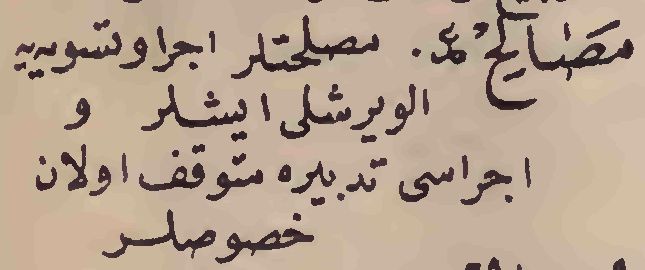 مَصَالِحْ ع. مصلحتلر اجرا وتسويه‌يه
الويرشلى ايشلر و
اجراسى تدبيره متوقف اولان
خصوصلر